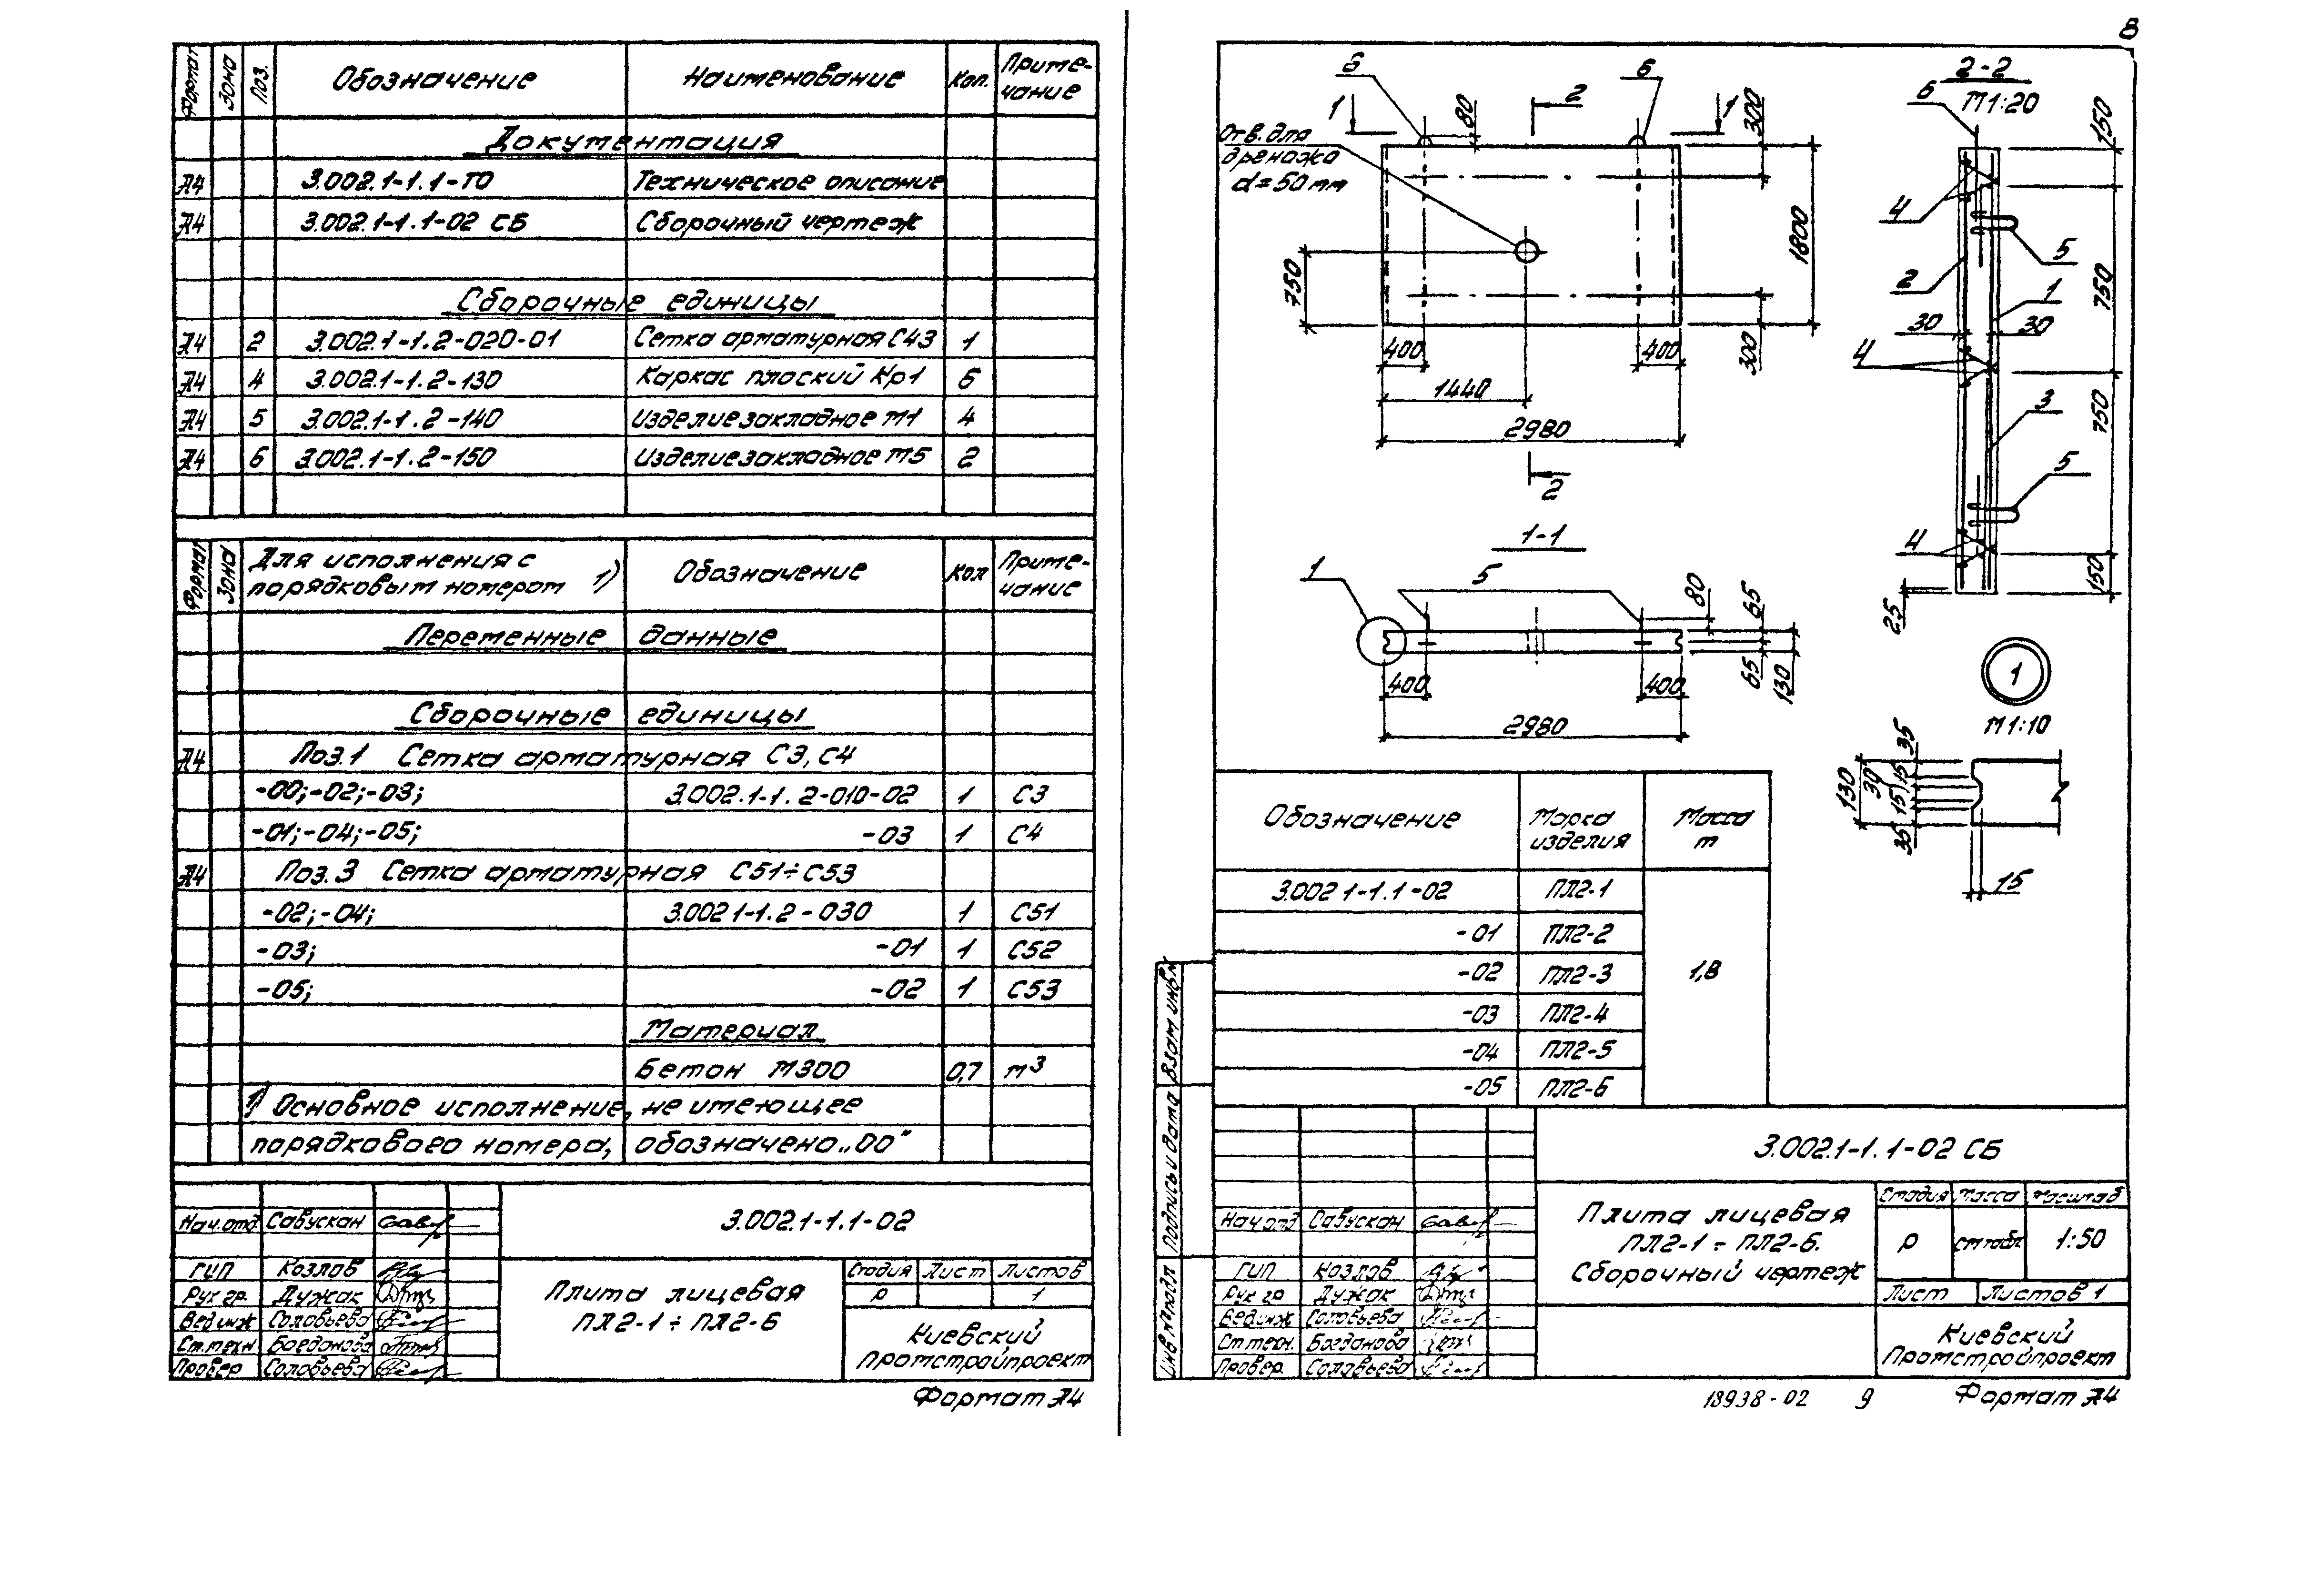 Формат Зона Поз. Обозначение Наименование Кол. Примечание
Документация
А4 3.002.1-1.1-ТО Техническое описание
А4 3.002.1-1.1-02 СБ Сборочный чертеж
Сборочные единицы
А4 2 3.002.1-1.2-020-01 Сетка арматурная С43 1
А4 4 3.002.1-1.2-130 Каркас плоский Кр1 6
А4 5 3.002.1-1.2-140 Изделие закладное М1 4
А4 6 3.002.1-1.2-150 Изделие закладное М5 2
Формат Зона Для исполнения с порядковым номером 1) Обозначение Кол Примечание
Переменные данные
Сборочные единицы
А4 Поз.1 Сетка арматурная С3, С4
-00;-02;-03; 3.002.1-1.2-010-02 1 С3
-01;-04;-05; -03 1 С4
А4 Поз.3 Сетка арматурная С51÷С53
-02;-04; 3.002 1-1.2-030 1 С51
-03; -01 1 С52
-05; -02 1 С53
Материал
Бетон М300 0,7 м³
1) Основное исполнение, не имеющее
порядкового номера, обозначено „00"
Нач.отд Савускан
3.002.1-1.1-02
ГИП Козлов
Рук гр. Дужак
Вед инж Соловьева
Ст.техн Богданова
Провер Соловьева
Плита лицевая
ПЛ2-1 ÷ ПЛ2-6
Стадия Лист Листов
Р 1
Киевский
Промстройпроект
Формат А4
8
6 6
1 2 1
80
300
Отв. для
дренажа
d=50мм
750
1800
400 400
300
1440
2980
2
2-2
М1:20
6
150
4
5
2
1
750
30 30
4
750
3
5
4
150
25
1-1
1
5
80
65
65
130
400 400
2980
1
М1:10
35
15
15
35
30
130
15
Обозначение Марка изделия Масса т
3.002 1-1.1-02 ПЛ2-1
-01 ПЛ2-2
-02 ПЛ2-3 1,8
-03 ПЛ2-4
-04 ПЛ2-5
-05 ПЛ2-6
Взам инв №
Подпись и дата
Инв № подл
3.002.1-1.1-02 СБ
Нач.отд Савускан
ГИП Козлов
Рук гр Дужак
Вед инж Соловьева
Ст техн. Богданова
Провер. Соловьева
Плита лицевая
ПЛ2-1 ÷ ПЛ2-6.
Сборочный чертеж
Стадия Масса Масштаб
Р см табл 1:50
Лист Листов 1
Киевский
Промстройпроект
18938-02 9 Формат А4